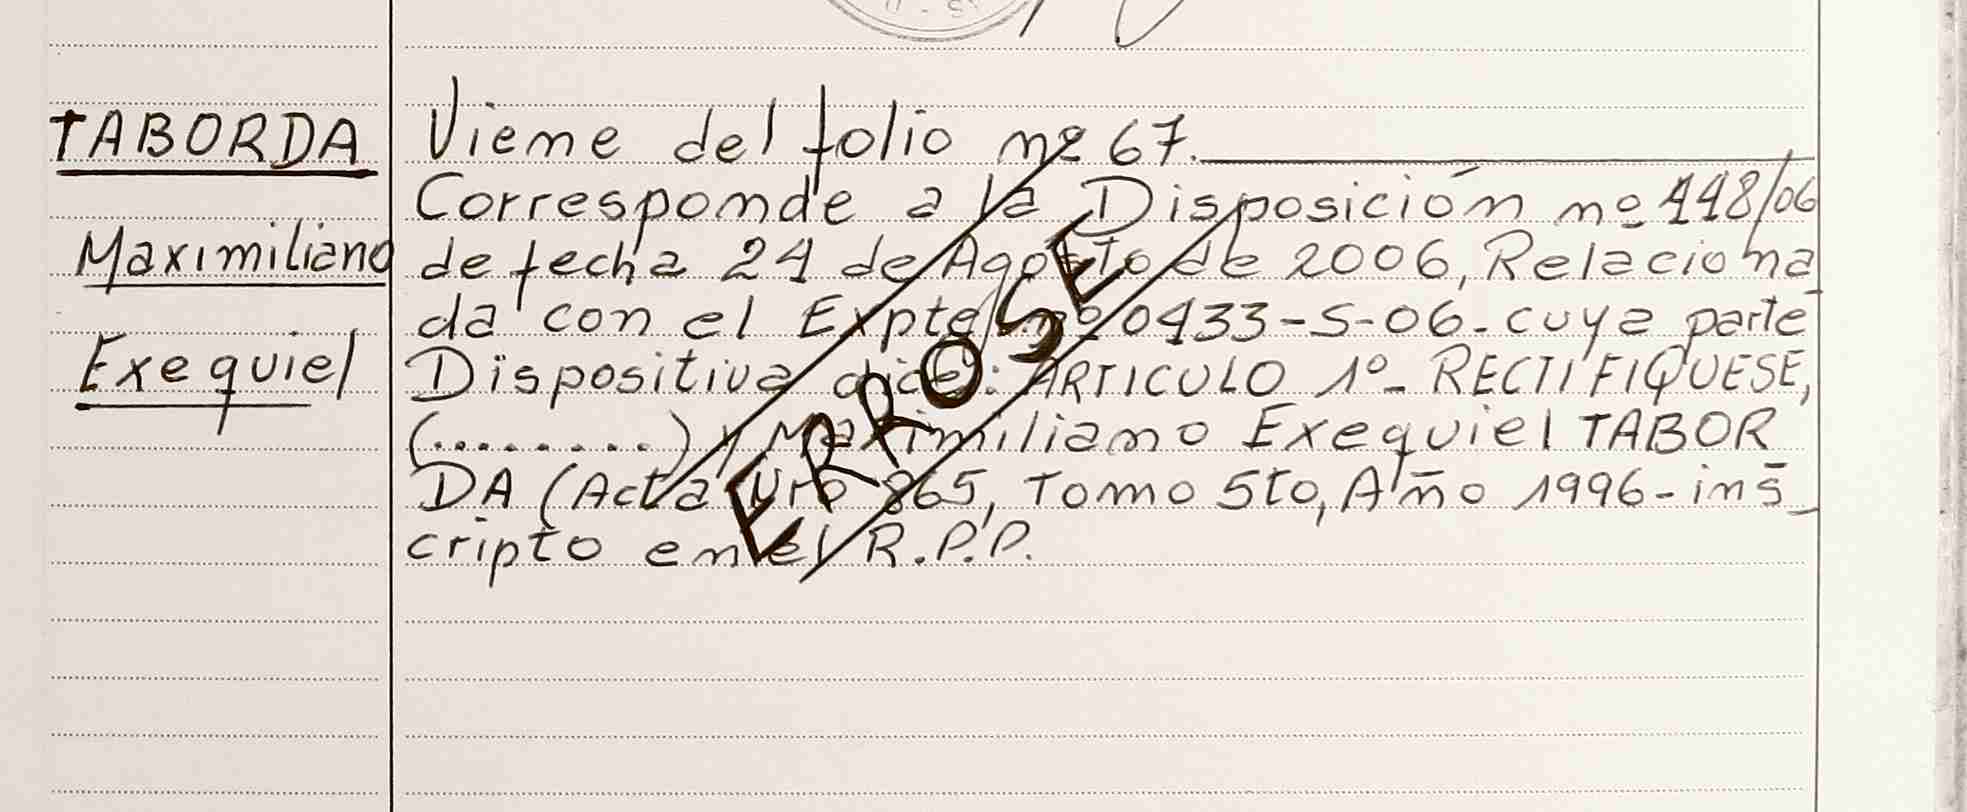 TABORDA
Maximiliano
Exequiel
Viene del folio nº 67.
Corresponde a la Disposición nº 448/06
de fecha 24 de Agosto de 2006, Relaciona
da con el Expte nº 0433-S-06. cuya parte
Dispositiva dice: ARTICULO 1º- RECTIFIQUESE,
(.........) y Maximiliano Exequiel TABOR
DA (Acta Nro 865, Tomo 5to, Año 1996-ins
cripto en el R.P.P.
ERROSE